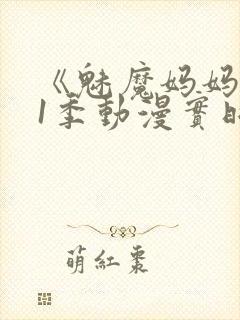 《魅魔妈妈
1季動漫實
萌紅棗